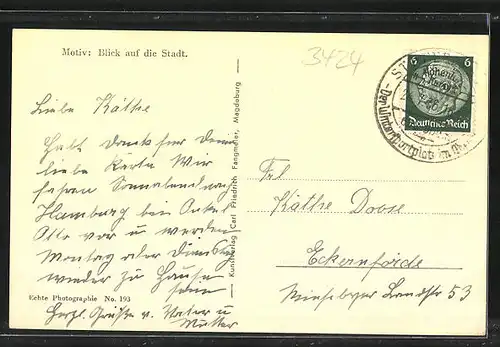 Motiv: Blick auf die Stadt.
3424
6 6
Deutsches Reich
Der Wintersportplatz im
Liebe Käthe
Habt Dank für Deine
liebe Karte Wir
fahren Sonnabend nach
Hamburg bei Onkel
Otto vor u werden
Montag oder Dienstag
wieder zu Hause
sein
Herzl. Grüße v. Vater u
Mutter
Echte Photographie No. 193
Kunstverlag Carl Friedrich Fangmeier, Magdeburg
Frl
Käthe Doose
Eckernförde
Landstr 53